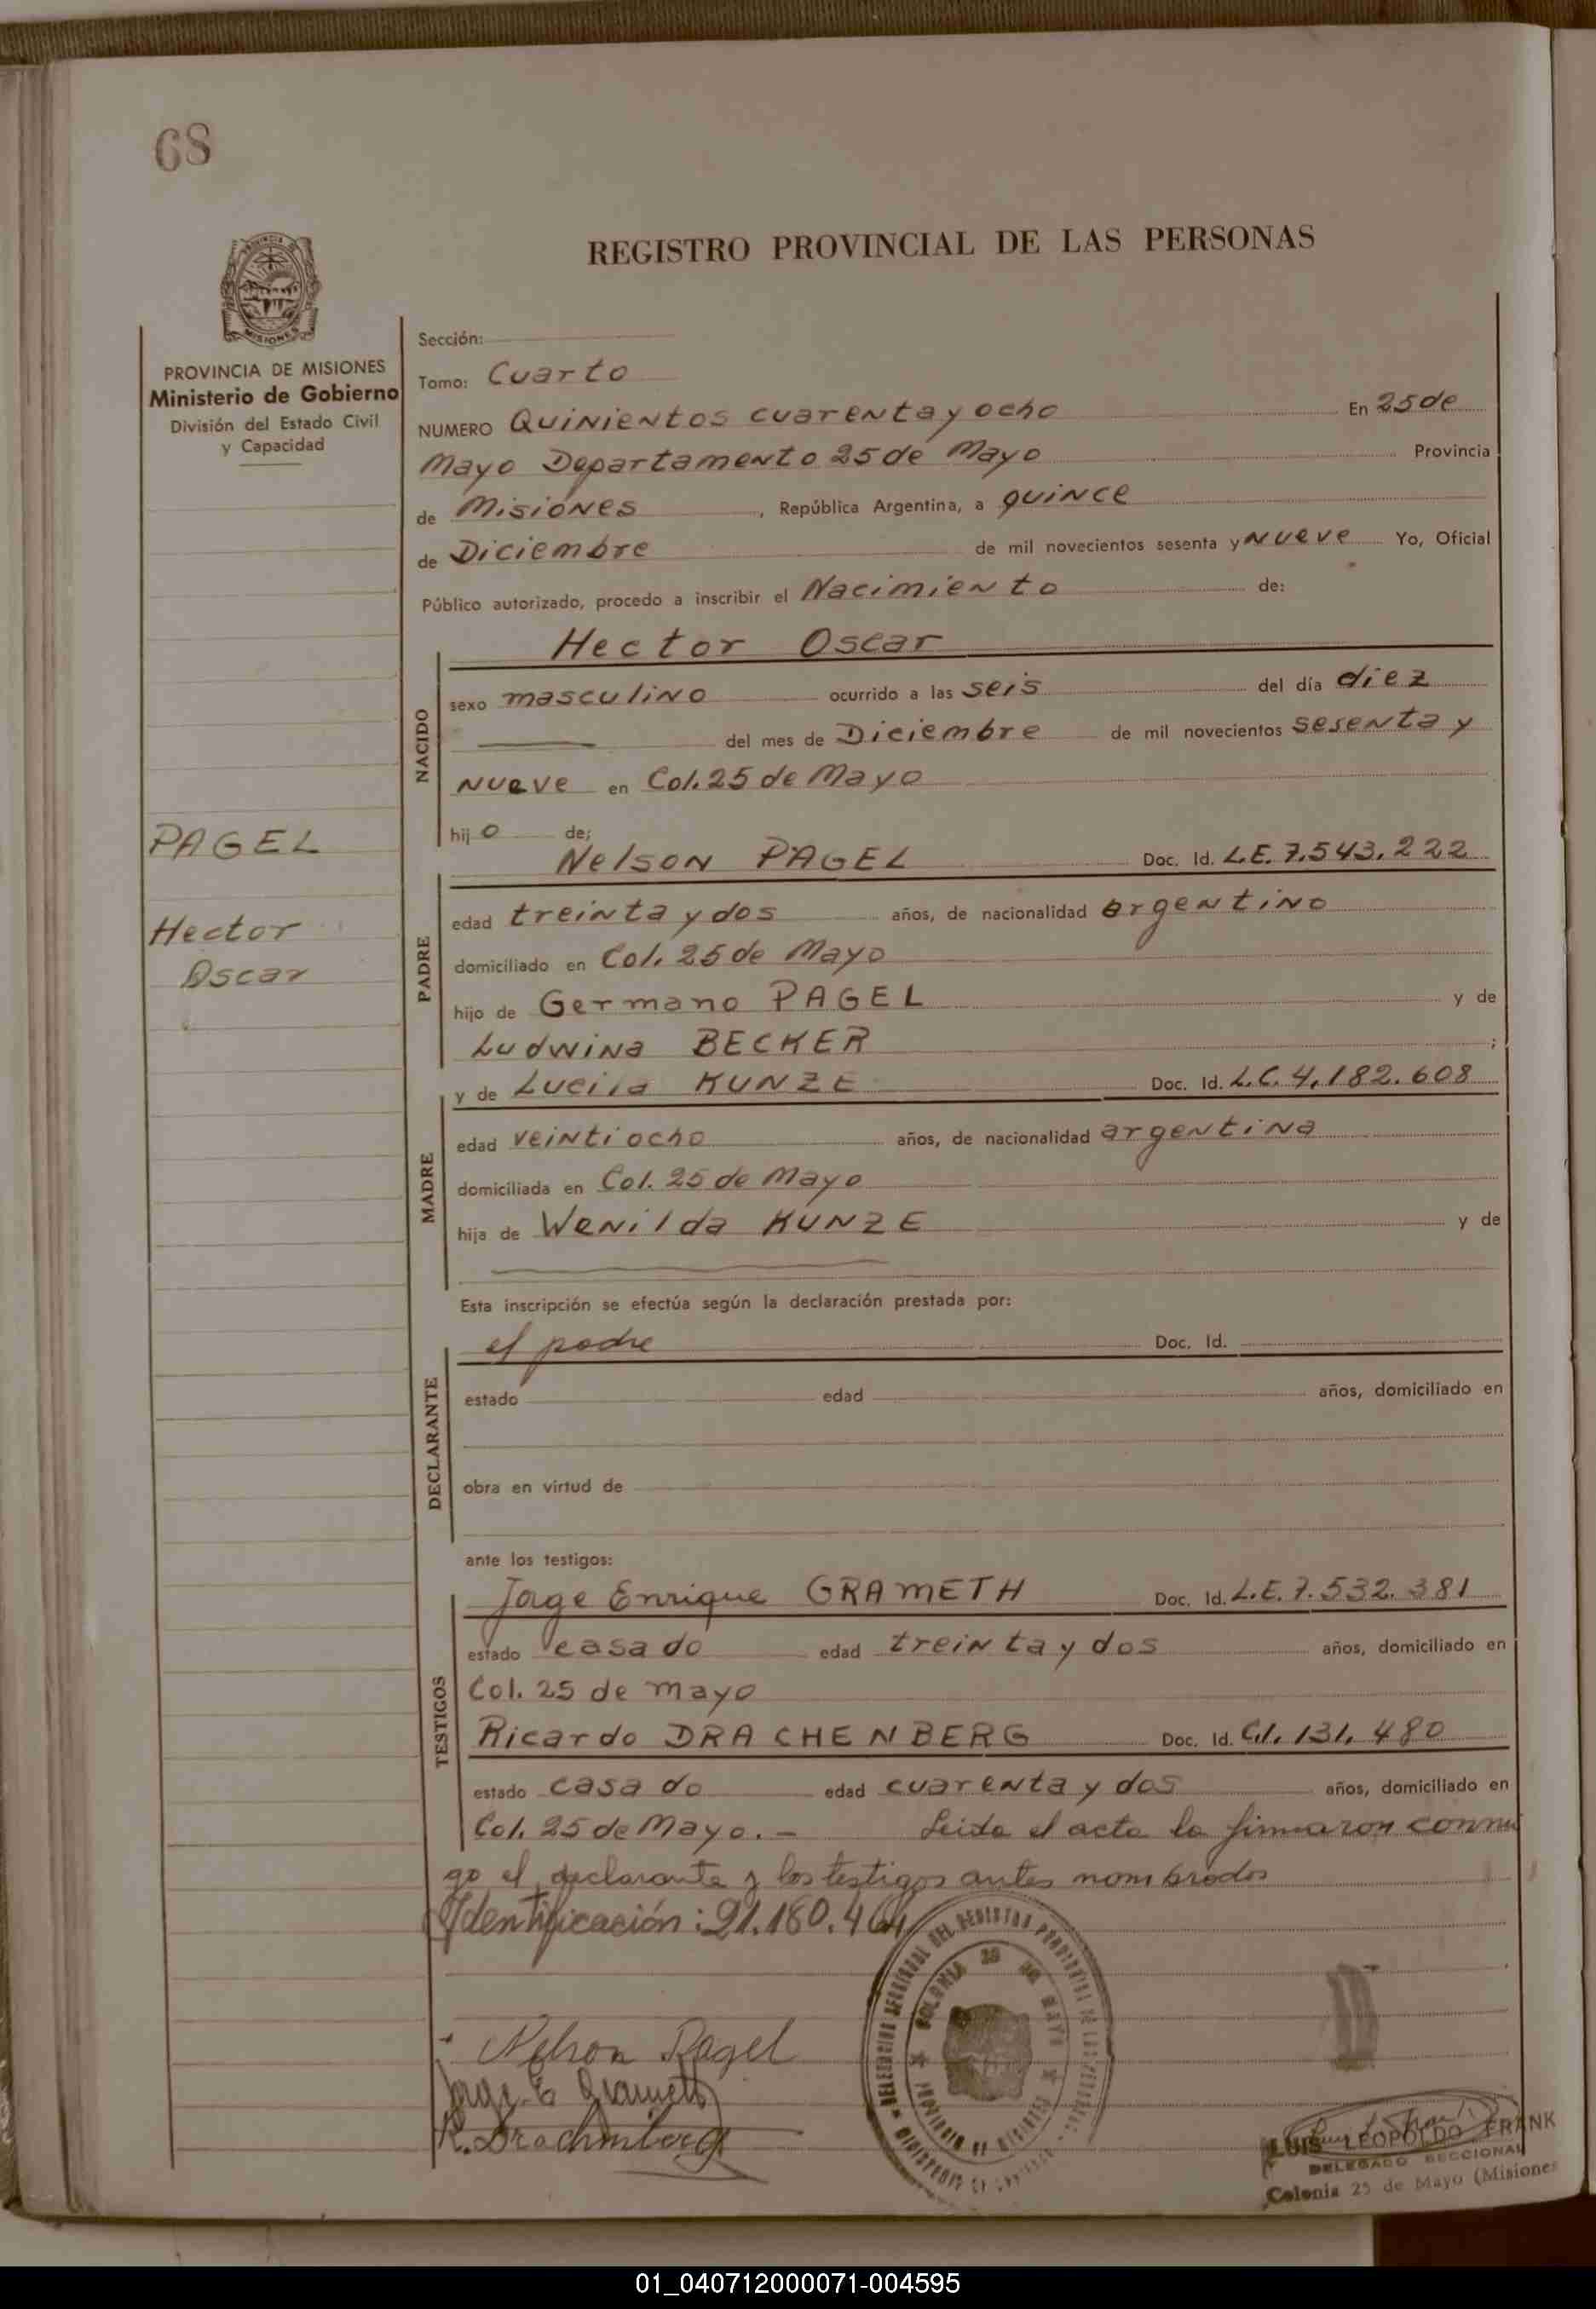 68
REGISTRO PROVINCIAL DE LAS PERSONAS
MISIONES
PROVINCIA DE MISIONES
Ministerio de Gobierno
División del Estado Civil
y Capacidad
Sección:
Tomo: Cuarto
NUMERO Quinientos cuarenta y ocho En 25 de
Mayo Departamento 25 de Mayo Provincia
de Misiones, República Argentina, a quince
de Diciembre de mil novecientos sesenta y nueve Yo, Oficial
Público autorizado, procedo a inscribir el Nacimiento de:
Hector Oscar
NACIDO
sexo masculino ocurrido a las seis del día diez
del mes de Diciembre de mil novecientos sesenta y
nueve en Col. 25 de Mayo
hijo de;
PAGEL
Hector
Oscar
Nelson PAGEL Doc. Id. L.E. 7.543.222
PADRE
edad treinta y dos años, de nacionalidad argentino
domiciliado en Col. 25 de Mayo
hijo de Germano PAGEL y de
Ludwina BECKER ;
y de Lucila KUNZE Doc. Id. L.C. 4.182.608
MADRE
edad veintiocho años, de nacionalidad argentina
domiciliada en Col. 25 de Mayo
hija de Wenilda KUNZE y de
Esta inscripción se efectúa según la declaración prestada por:
el padre Doc. Id.
DECLARANTE
estado edad años, domiciliado en
obra en virtud de
ante los testigos:
Jorge Enrique GRAMETH Doc. Id. L.E. 7.532.381
TESTIGOS
estado casado edad treinta y dos años, domiciliado en
Col. 25 de mayo
Ricardo DRACHENBERG Doc. Id. C.I. 131.480
estado casado edad cuarenta y dos años, domiciliado en
Col. 25 de Mayo. - Leida el acta la firmaron conmi
go el declarante y los testigos antes nombrados
Identificación: 21.180.464
Nelson Pagel
Jorge E Grameth
R. Drachenberg
COLONIA 25 DE MAYO
PROVINCIA DE MISIONES
LUIS LEOPOLDO FRANK
DELEGADO SECCIONAL
Colonia 25 de Mayo (Misiones
01_040712000071-004595